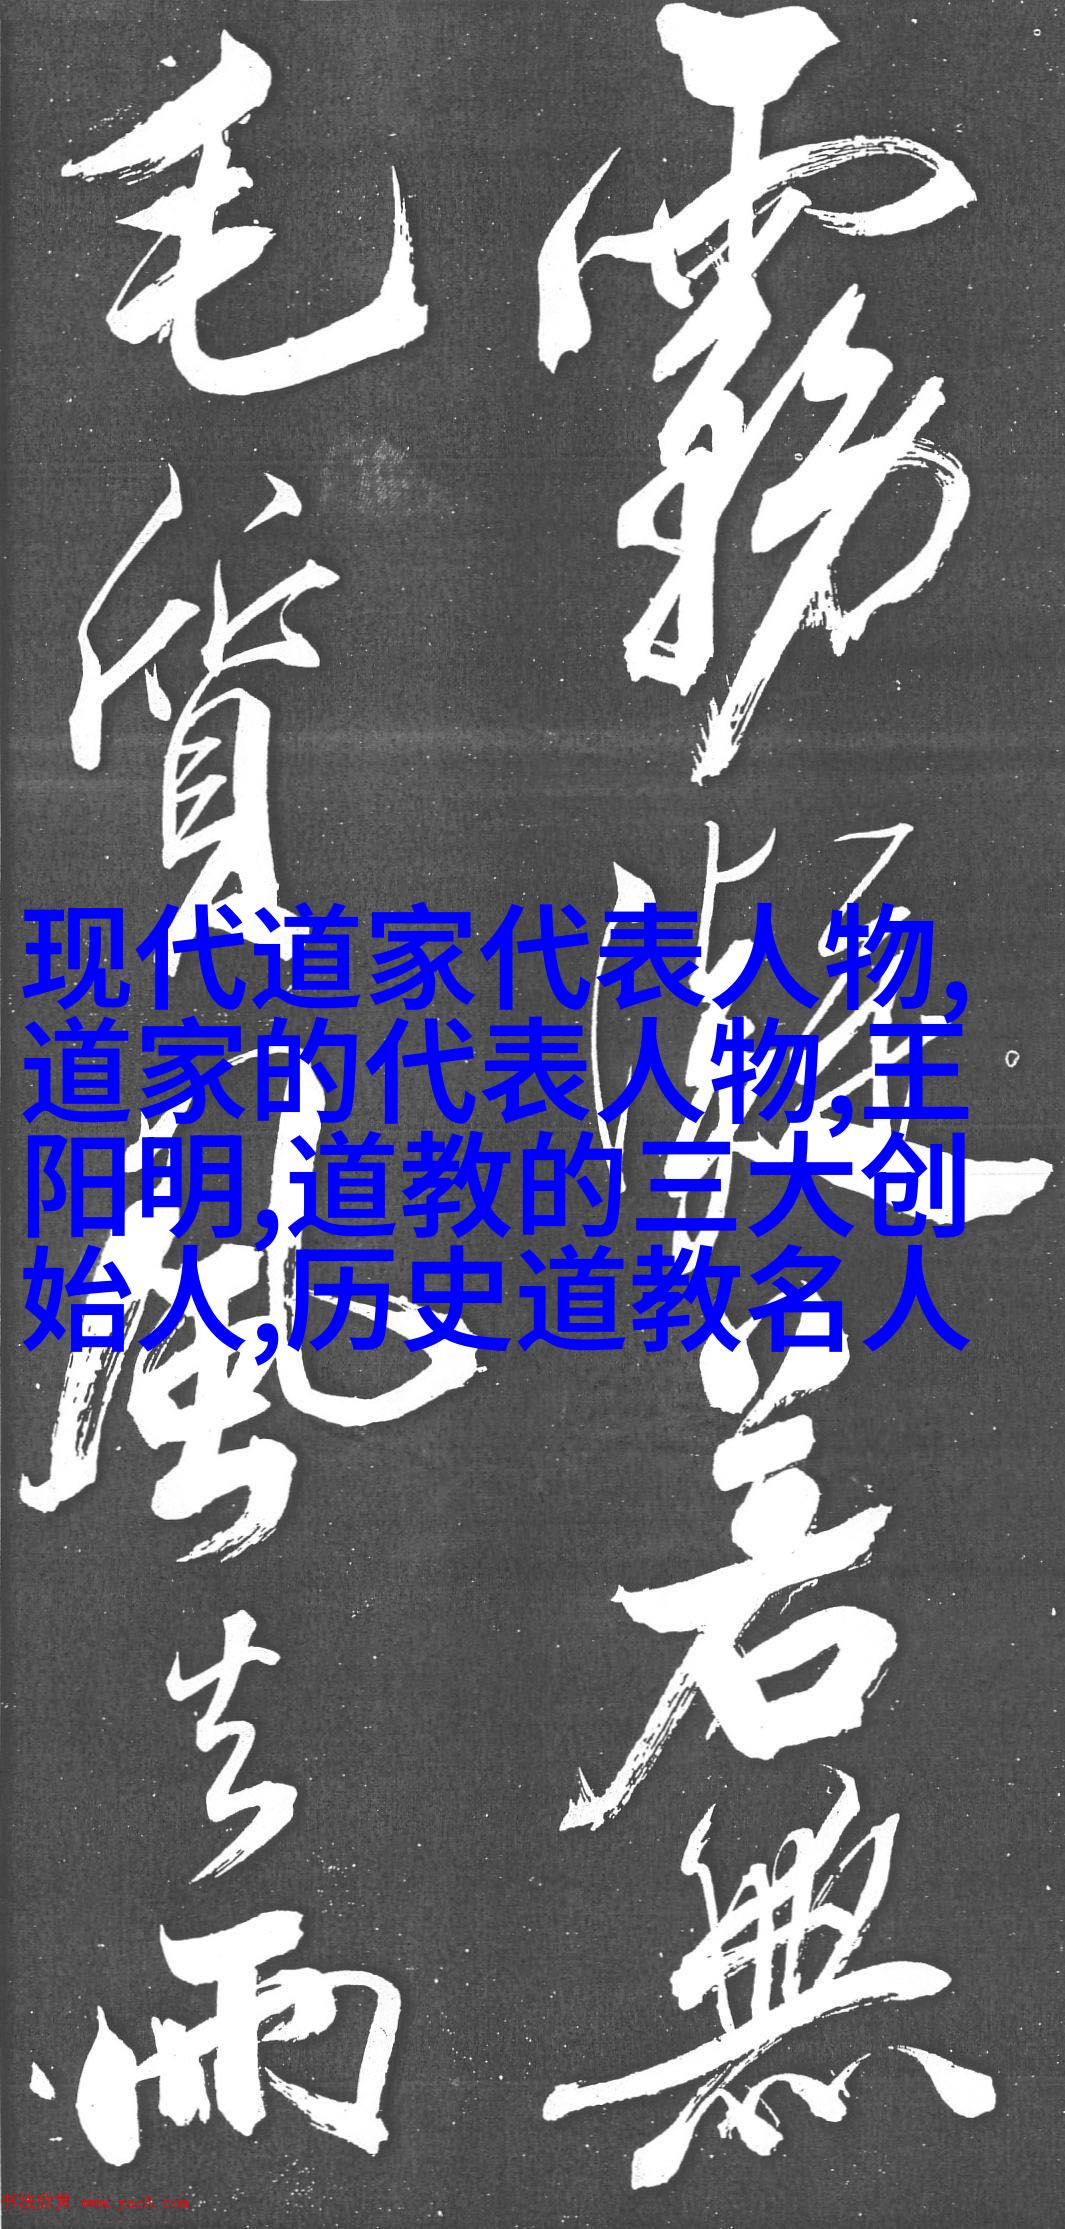 霧凝若無
毛質風去雨
现代道家代表人物,
道家的代表人物,王
阳明,道教的三大创
始人,历史道教名人
书法欣赏 www.yac8.com